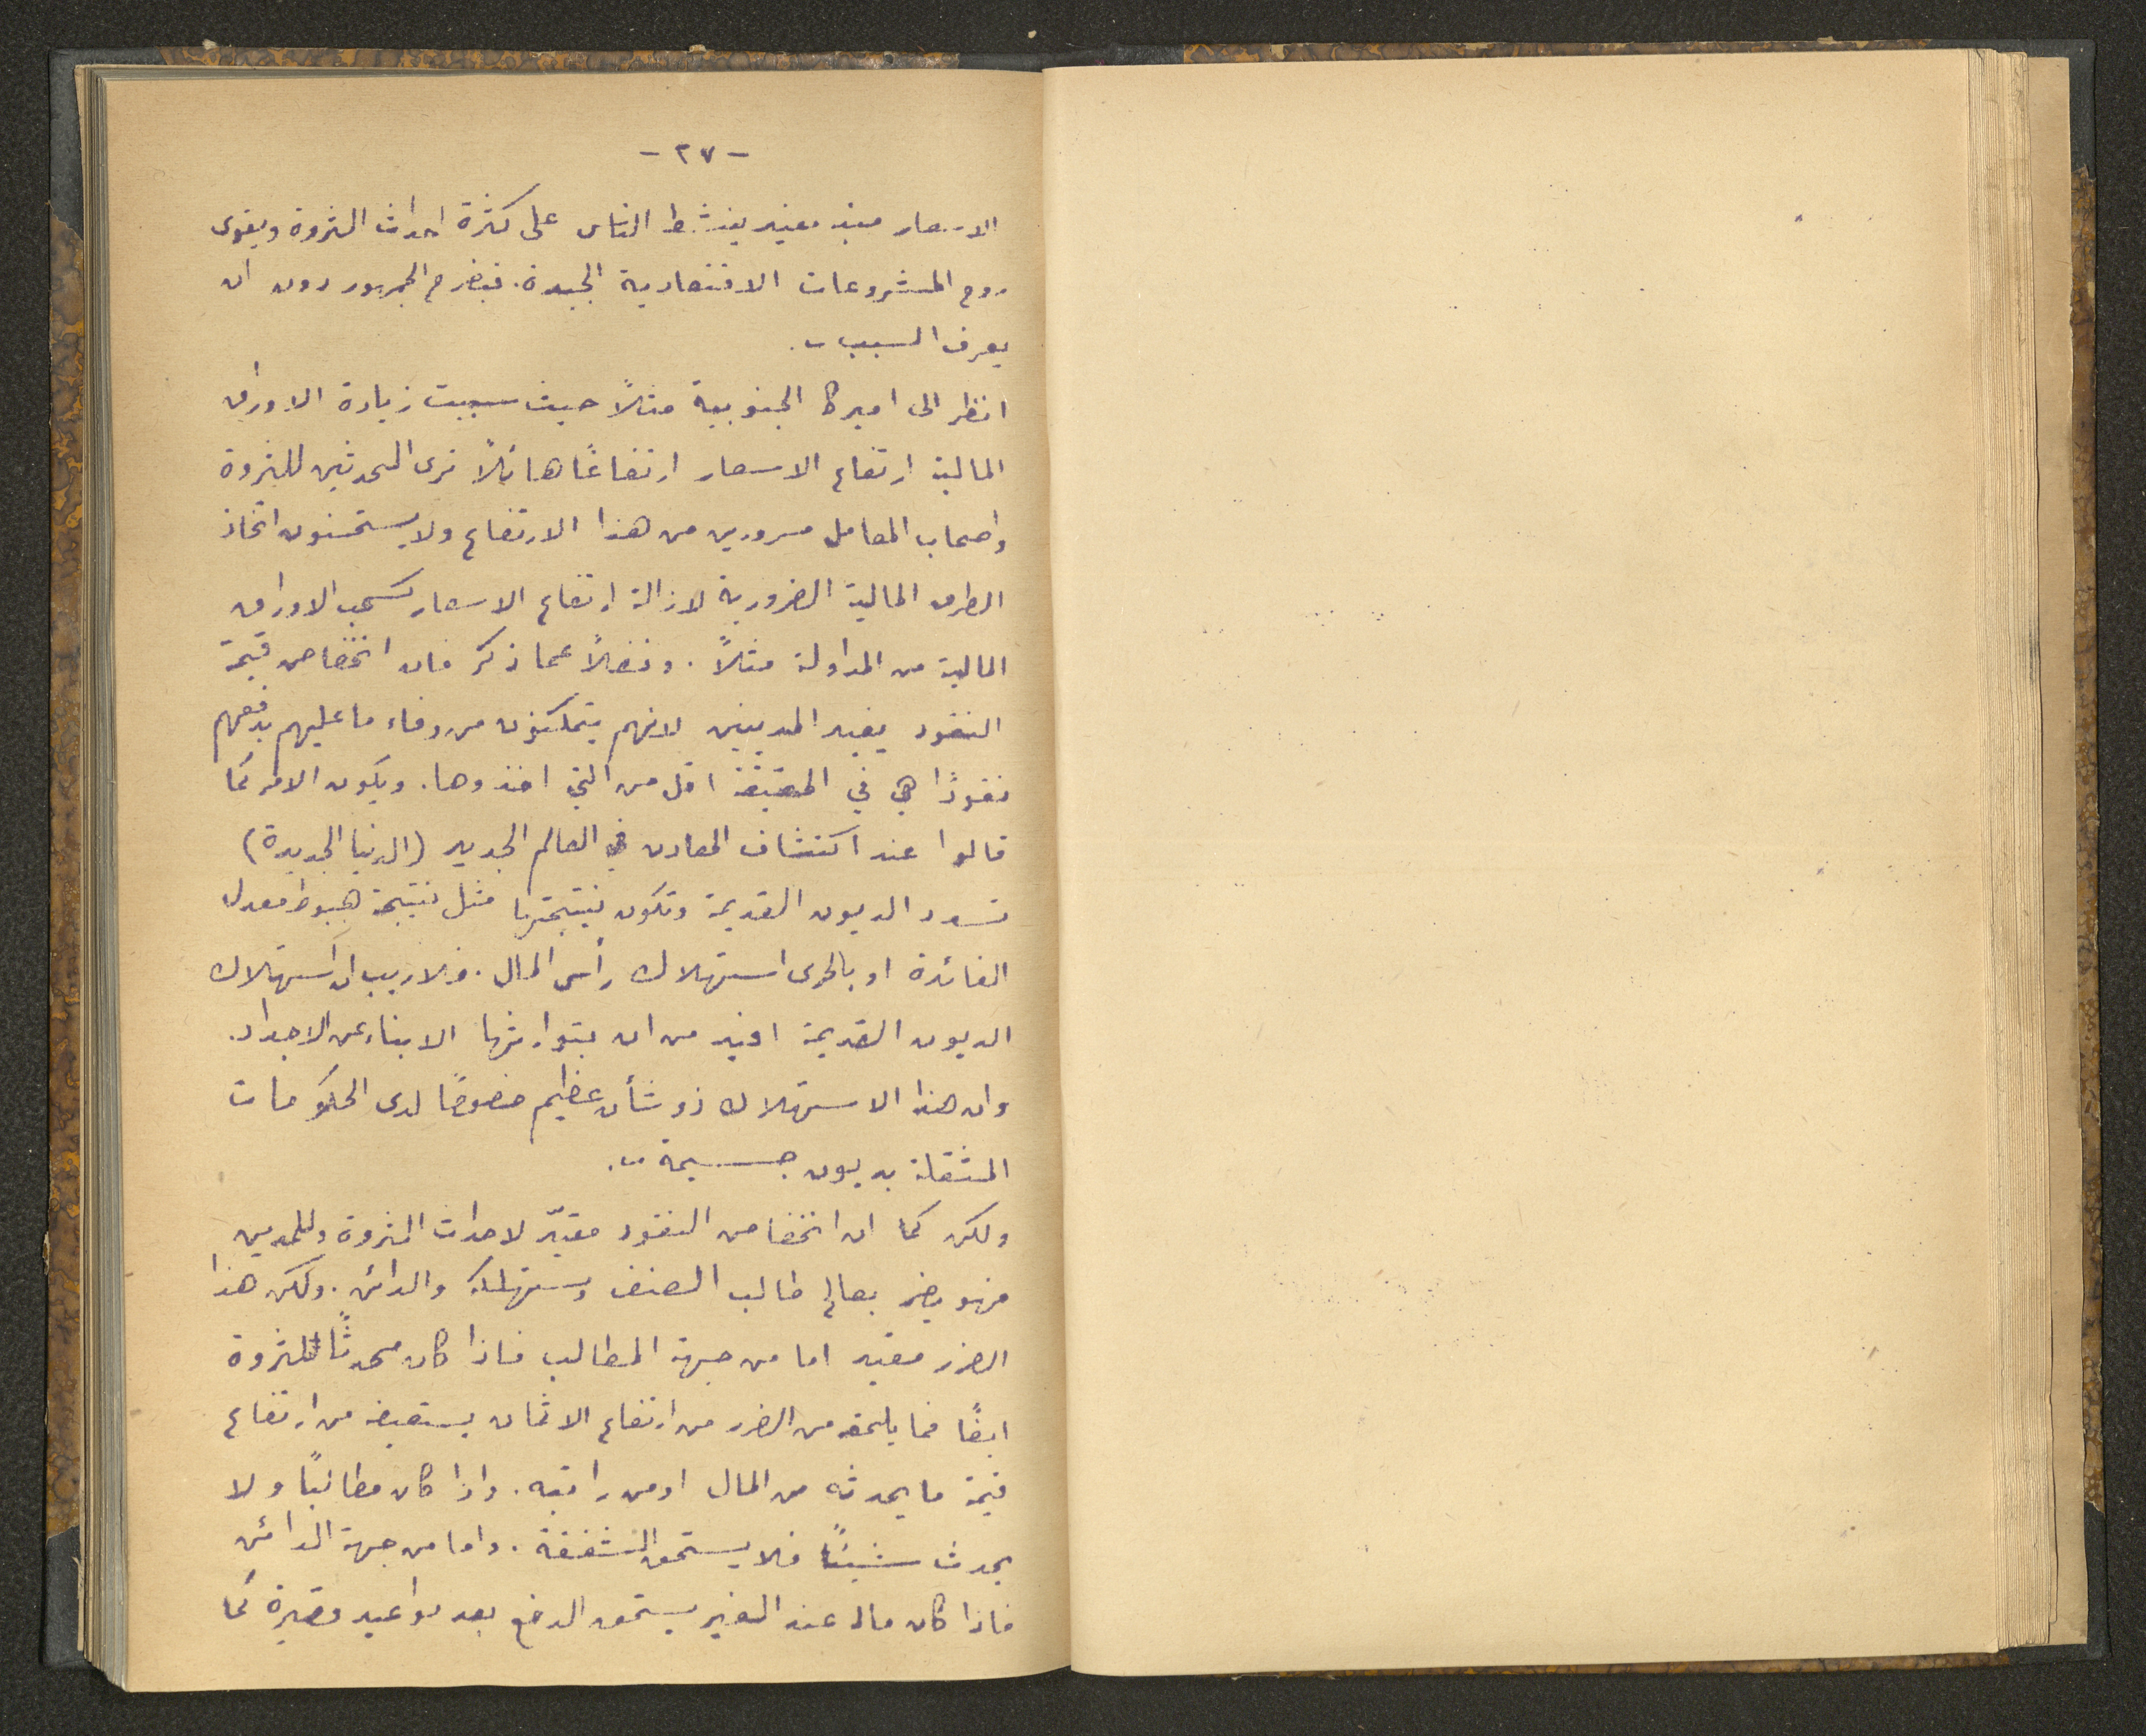 - ٢٧ -
الاسعار مفيد ينشط الناس على كثرة احداث الثروة ويقوى
روح المشروعات الاقتصادية الجيدة. فيفرح الجمهور دون ان
يعرف السبب.
انظر الى اميركا الجنوبية مثلاً حيث سببت زيادة الاوراق
المالية ارتفاع الاسعار ارتفاعًا هائلاً ترى المحدثين للثروة
واصحاب المعامل مسرورين من هذا الارتفاع ولا يستحسنون اتخاذ
الطرق المالية الضرورية لازالة ارتفاع الاسعار كسحب الاوراق
المالية من المداولة مثلاً. وفضلاً عما ذكر فان انخفاض قيمة
النقود يفيد المديينين لانهم يتمكنون من وفاء ما عليهم بدفعهم
نقودًا هي في الحقيقة اقل من التي اخذوها. ويكون الامر كما
قالوا عند اكتشاف المعادن في العالم الجديد (الدنيا الجديدة)
تسدد الديون القديمة وتكون نتيجتها مثل نتيجة هبوط معدل
الفائدة او بالحرى استهلاك رأس المال. فلا ريب ان استهلاك
الديون القديمة افيد من ان يتوارثها الابناء عن الاجداد.
وان هذا الاستهلاك ذو شأن عظيم خصوصًا لدى الحكومات
المثقلة بديون جسيمة.
ولكن كما ان انخفاض النقود مفيد لاحداث الثروة وللمدين
فهو يضر بصالح طالب الصنف ومستهلكه والدائن. ولكن هذا
الضرر مقيد اما من جهة المطالب فاذا كان محدثًا للثروة
ايضًا فما يلحقه من الضرر من ارتفاع الاثمان يستعيضه من ارتفاع
قيمة ما يحدثه من المال او من راتبه. واذا كان مطالبًا ولا
يحدث شيئًا فلا يستحق الشفقة. واما من جهة الدائن
فاذا كان ماله عند الغير يستحق الدفع بعد مواعيد قصيرة كما